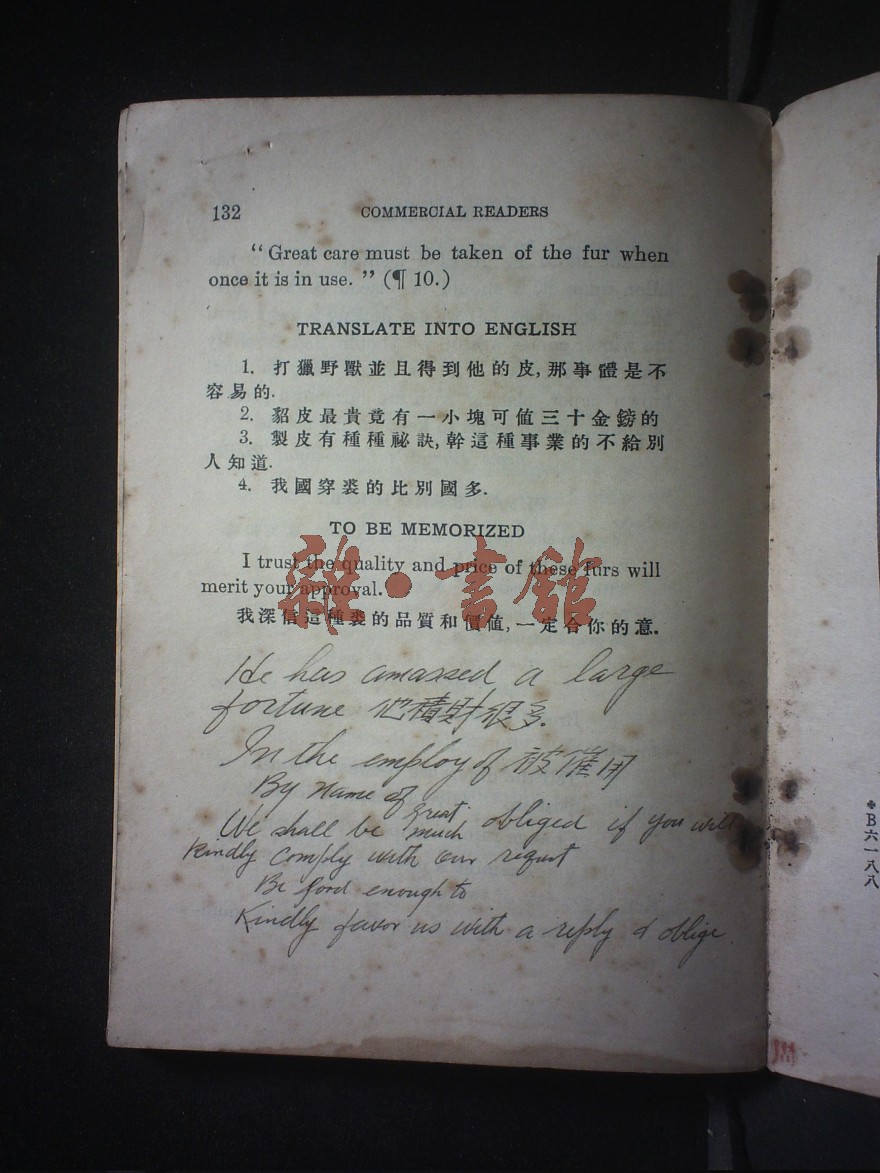 132 COMMERCIAL READERS
“Great care must be taken of the fur when
once it is in use.” (¶ 10.)
TRANSLATE INTO ENGLISH
1. 打獵野獸並且得到他的皮,那事體是不
容易的.
2. 貂皮最貴竟有一小塊可値三十金鎊的
3. 製皮有種種祕訣,幹這種事業的不給別
人知道.
4. 我國穿裘的比別國多.
TO BE MEMORIZED
I trust the quality and price of these furs will
merit your approval.
我深信這種裘的品質和價値,一定合你的意.
雜·書館
He has amassed a large
fortune 他積財很多.
In the employ of 被僱用
By name of
great
We shall be much obliged if you will
kindly comply with our request
Be good enough to
Kindly favor us with a reply & oblige
B六一八八